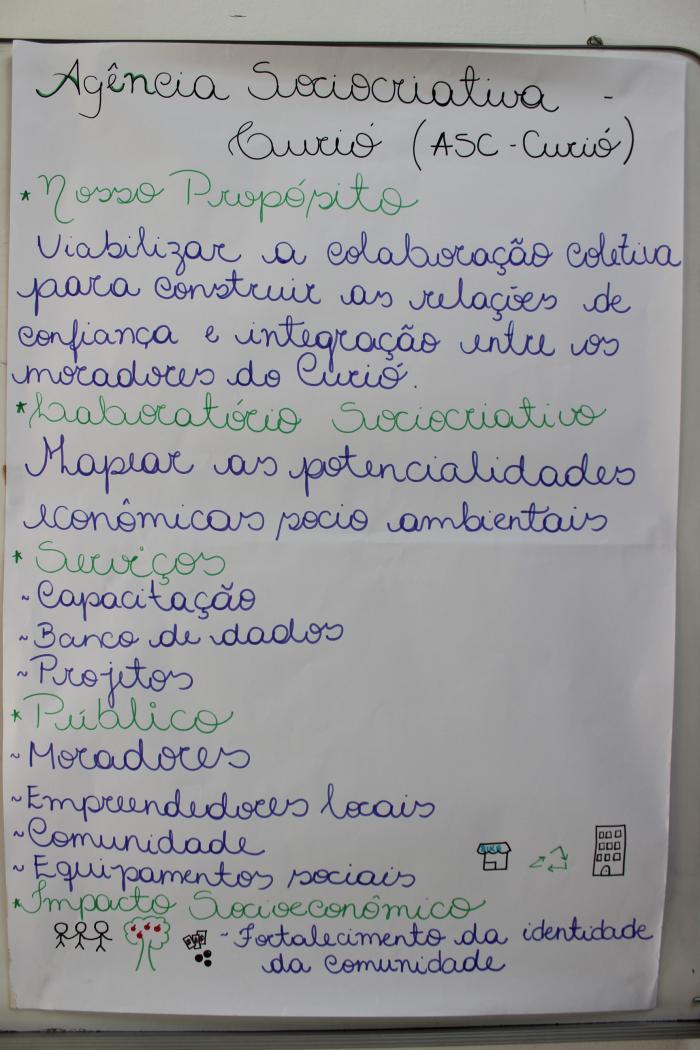 Agência Sociocriativa -
Curió (ASC - Curió)
* Nosso Propósito
Viabilizar a colaboração coletiva
para construir as relações de
confiança e integração entre os
moradores do Curió.
* Laboratório Sociocriativo
Mapear as potencialidades
econômicas socio ambientais
* Serviços
~ Capacitação
~ Banco de dados
~ Projetos
* Público
~ Moradores
~ Empreendedores locais
~ Comunidade
~ Equipamentos sociais
* Impacto Socioeconômico
~ Fortalecimento da identidade
da comunidade